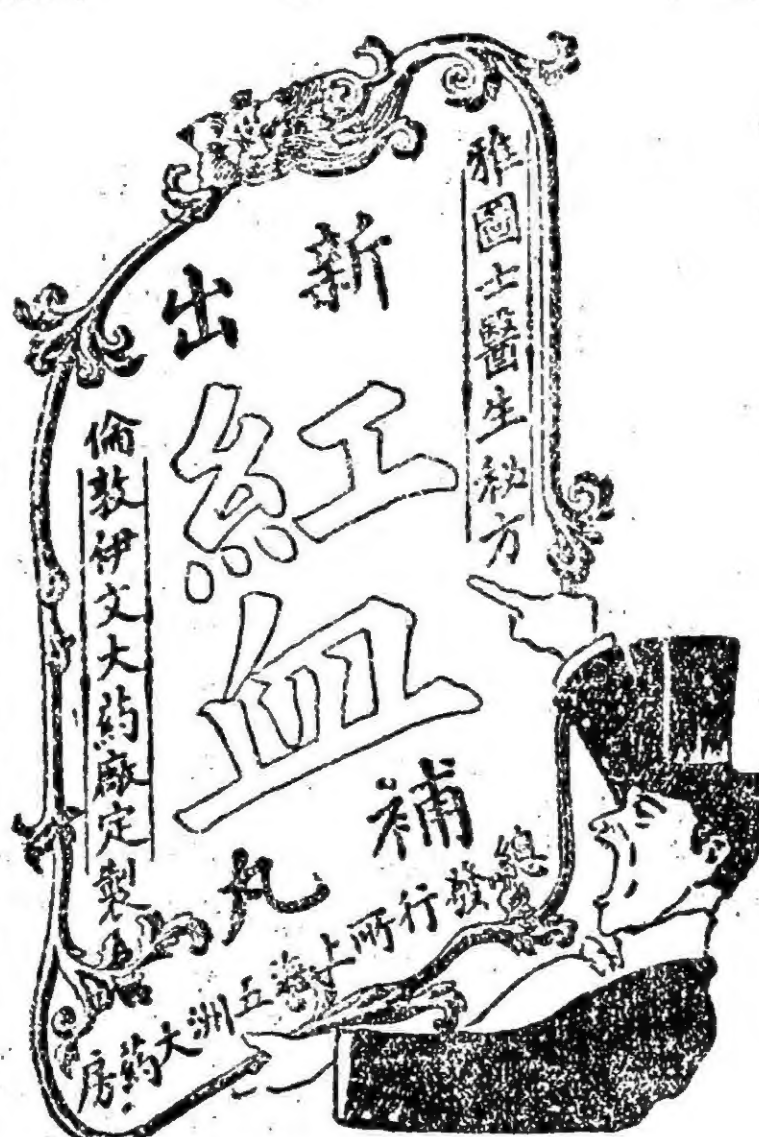 雅國士醫生秘方
新出
紅血
補丸
倫敦伊文大葯廠定製
總發行所上海五洲大葯房